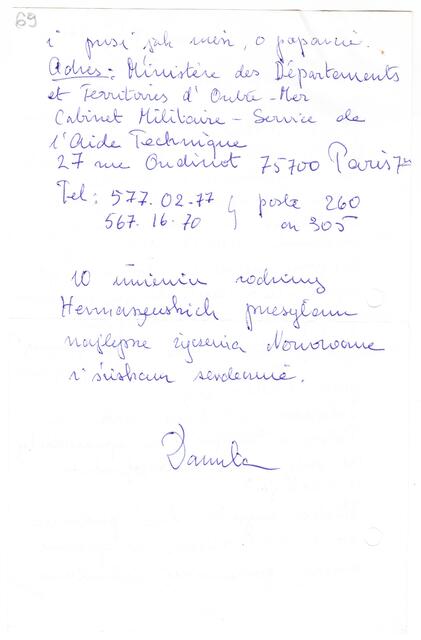 69
i prosi jak wiesz, o poparcie.
Adres: Ministère des Départements
et Territoires d'Outre-Mer
Cabinet Militaire - Service de
l'Aide Technique
27 rue Oudinot 75700 Paris 7
Tel: 577.02.77 poste 260
567.16.70 ou 305
W imieniu rodziny
przesyłam
najlepsze życzenia Noworoczne
i ściskam serdecznie.
Danuta